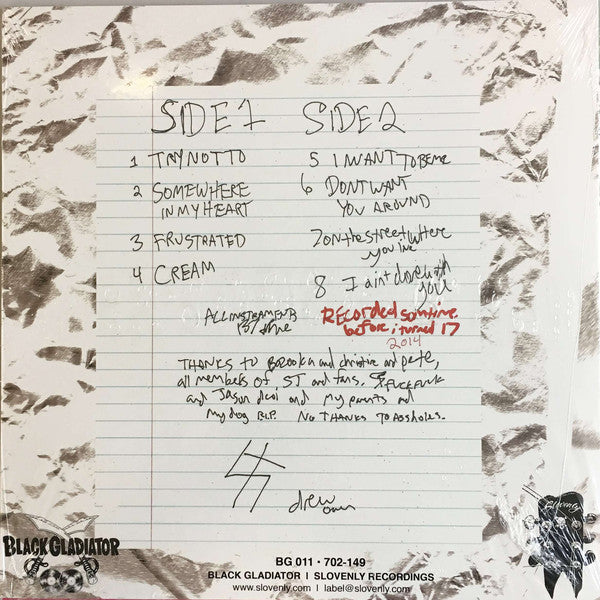 SIDE 1
1 TRY NOT TO
2 SOMEWHERE
IN MY HEART
3 FRUSTRATED
4 CREAM
SIDE 2
5 I WANT TO BE ME
6 DONT WANT
YOU AROUND
7 on the street where
you live
8 I aint done with
you
ALL INSTRAMENTS
BY
RECORded somtime
before i turned 17
2014
THANKS TO BROOKE and christine and pete,
all members of ST and fans.
and Jason and my parents and
my dog R.I.P. NO THANKS TO ASSHOLES.
drew
owen
BLACK GLADIATOR
Slovenly
BG 011 • 702-149
BLACK GLADIATOR | SLOVENLY RECORDINGS
www.slovenly.com | label@slovenly.com